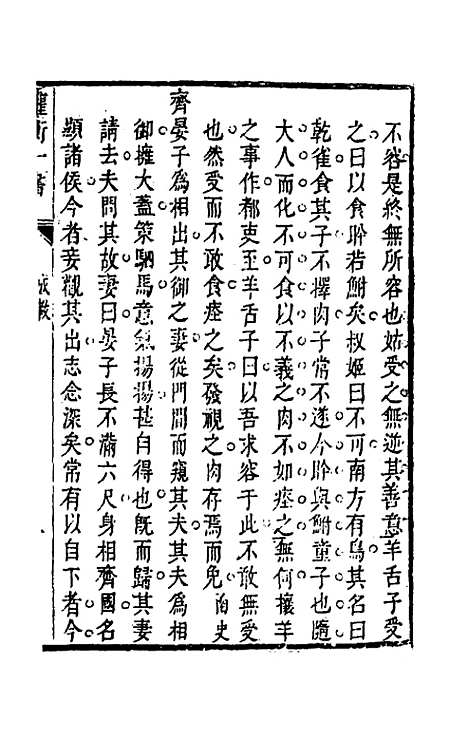 不容是終無所容也姑受之無逆其善意羊舌子受
之曰以食肸若鮒矣叔姬曰不可南方有鳥其名曰
乾雀食其子不擇肉子常不遂今肸與鮒童子也隨
大人而化不可食以不義之肉不如瘞之無何攘羊
之事作都吏至羊舌子曰以吾求容于此不敢無受
也然受而不敢食瘞之矣發視之肉存焉而免
齊晏子爲相出其御之妻從門閒而窺其夫其夫爲相
御擁大蓋策駟馬意氣揚揚甚自得也旣而歸其妻
請去夫問其故妻曰晏子長不滿六尺身相齊國名
顯諸侯今者妾觀其出志念深矣常有以自下者今